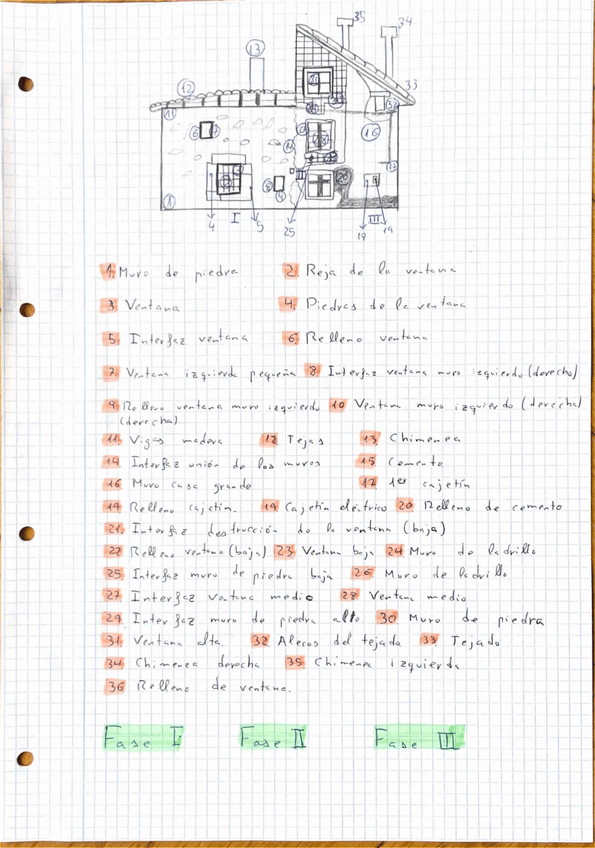 35
34
13
12
33
31
11
32
16
1
I
III
4
5
25
19 19
1. Muro de piedra 2. Reja de la ventana
3 Ventana 4. Piedras de la ventana
5. Interfaz ventana 6. Relleno ventana
7. Ventana izquierda pequeña 8 Interfaz ventana muro izquierdo (derecho)
9. Relleno ventana muro izquierdo 10 Ventana muro izquierdo (derecha)
(derecha)
11. Vigas madera 12 Tejas 13. Chimenea
14 Interfaz unión de los muros 15 Cemento
16 Muro casa grande 17 1er cajetín
19 Relleno cajetín. 19 Cajetín eléctrico 20 Relleno de cemento
21. Interfaz destrucción de la ventana (baja)
22 Relleno ventana (baja) 23 Ventana baja 24 Muro de ladrillo
25 Interfaz muro de piedra baja 26 Muro de ladrillo
27 Interfaz ventana medio 28 Ventana medio
29 Interfaz muro de piedra alto. 30 Muro de piedra
31 Ventana alta. 32 Aleros del tejado 33 Tejado
34 Chimenea derecha 35 Chimenea izquierda
36 Relleno de ventana.
Fase I Fase II Fase III